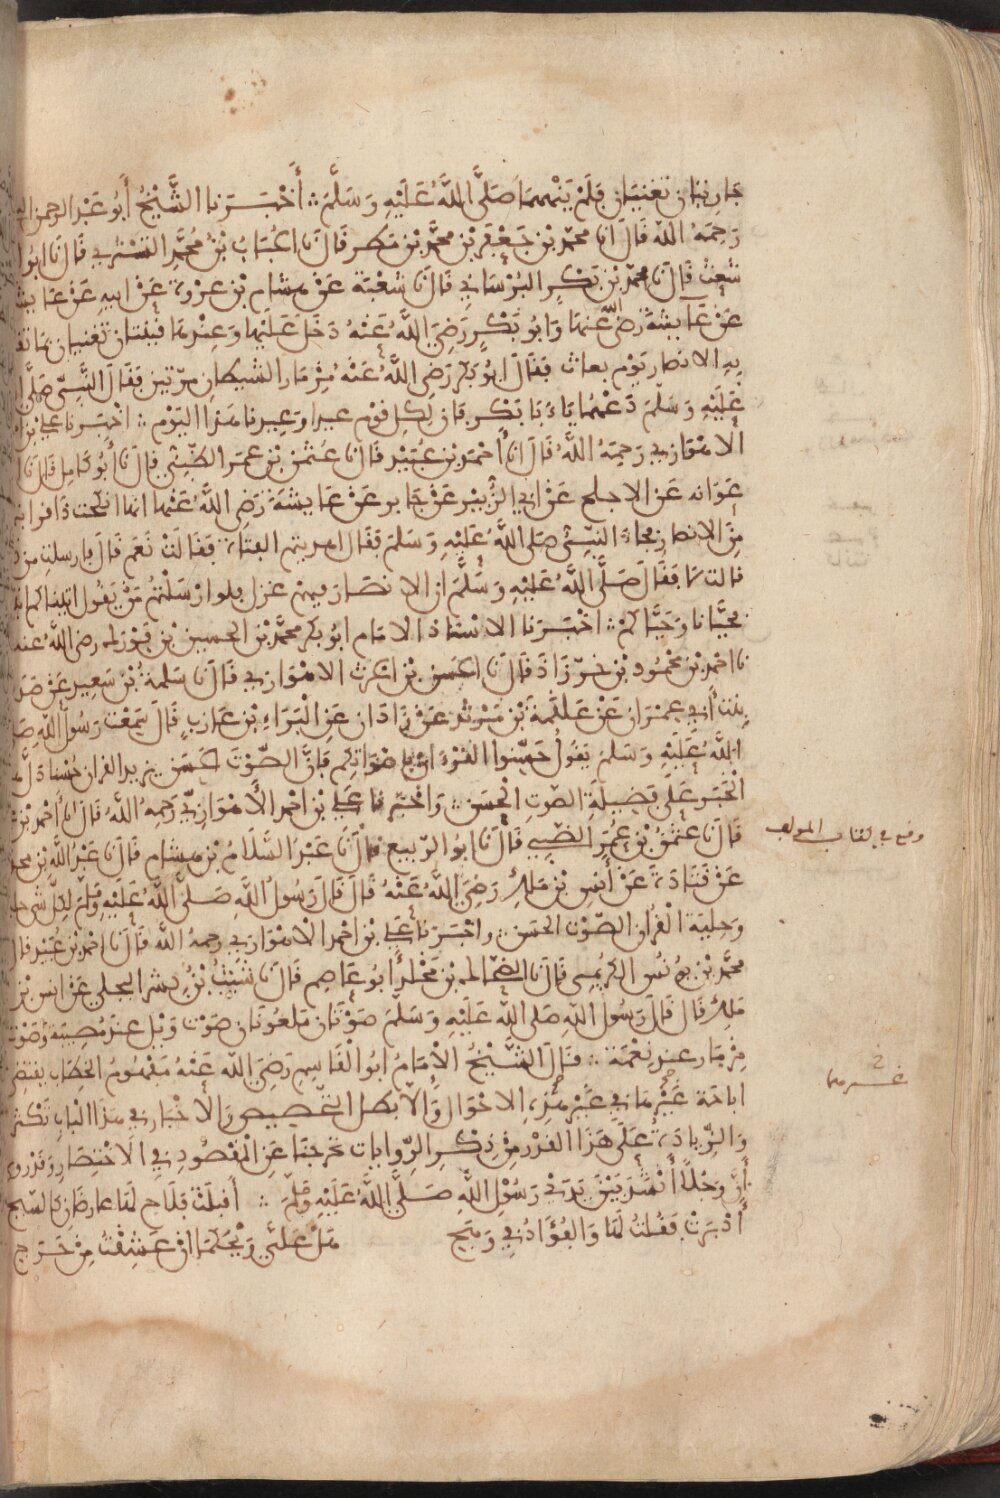 جاريتان تغنيان فلم ينههما صلى الله عليه وسلم ∴ أخبرنا الشيخ أبو عبد الرحمن
رحمه الله قال انا محمد بن جعفر بن محمد بن مطر قال نا الحباب بن محمد التستري قال نا ابوا
شعث قال نا محمد بن بكر البرساني قال نا شعبة عن هشام بن عروة عن ابيه عن عايشة
عن عايشة رضي الله عنها وابو بكر رضي الله عنه دخل عليها وعندها قينتان تغنيان بما تقا
به الانصار يوم بعاث فقال ابو بكر رضي الله عنه مزمار الشيطان مرتين فقال النبي صلى ا
عليه وسلم دعهما يا أبا بكر فان لكل قوم عيدا وعيدنا هذا اليوم ∴ اخبرنا علي بن
الاهوازي رحمه الله قال انا أحمد بن عبيد قال نا عثمن بن عمر الضبي قال نا أبو كامل قال نا
عوانه عن الاجلح عن ابي الزبير عن جابر عن عايشة رضي الله عنها انها انكحت ذا قرابـ
من الانصار فجاء النبي صلى الله عليه وسلم فقال اهديتم الفتاة فقالت نعم قال فارسلت من
قالت لا فقال صلى الله عليه وسلم ان الانصار فيهن غزل فلو ارسلتم من يقول اتيناكم اتيـ
محيانا وحياكم ∴ اخبرنا الاستاذ الامام ابو بكر محمد بن الحسين بن فورك رضي الله عنه
نا احمد بن محمود بن خرزاذ قال نا الحسن بن الحرث الاهوازي قال نا سلمة بن سعيد عن صد
بنت أبي عمران عن علقمة بن مرثد عن زاذان عن البراء بن عازب قال سمعت رسول الله صلـ
الله عليه وسلم يقول حسنوا القرءان باصواتكم فان الصوت الحسن يزيد القران حسنا دل
الخبر على فضيلة الصوت الحسن ∴ واخبرنا علي بن احمد الأهوازي رحمه الله قال نا أحمد بن
قال نا عثمن بن عمر الضبي قال نا ابو الربيع قال نا عبد السلام بن هشام قال نا عبد الله بن محر
عن قتادة عن أنس بن ملك رضي الله عنه قال قال رسول الله صلى الله عليه وسلم لكل شي حليـ
وحلية القران الصوت الحسن ∴ واخبرنا علي بن احمد الاهوازي رحمه الله قال نا احمد بن عبيد قال
محمد بن يونس الكريمي قال نا الضحاك بن مخلد أبو عاصم قال نا شبيب بن بشر البجلي عن انس بن
ملك قال قال رسول الله صلى الله عليه وسلم صوتان ملعونان صوت ويل عند مصيبة وصوت
مزمار عند نعمة ∴ قال الشيخ الإمام ابو القاسم رضي الله عنه مفهوم الخطاب يقتضي
اباحة غيرهما في غير هذه الاحوال والا بطل التخصيص والاخبار في هذا الباب تكثر
والزيادة على هذا القدر من ذكر الروايات تخرجنا عن المقصود في الاختصار وقد روي
أن رجلا أنشد بين يدي رسول الله صلى الله عليه وسلم ∴ أقبلت فلاح لها عارضان كالسبج
أدبرت فقلت لها والفؤاد في وهج هل علي ويحكما ان عشقت من حرج
وقع في كتاب المولف